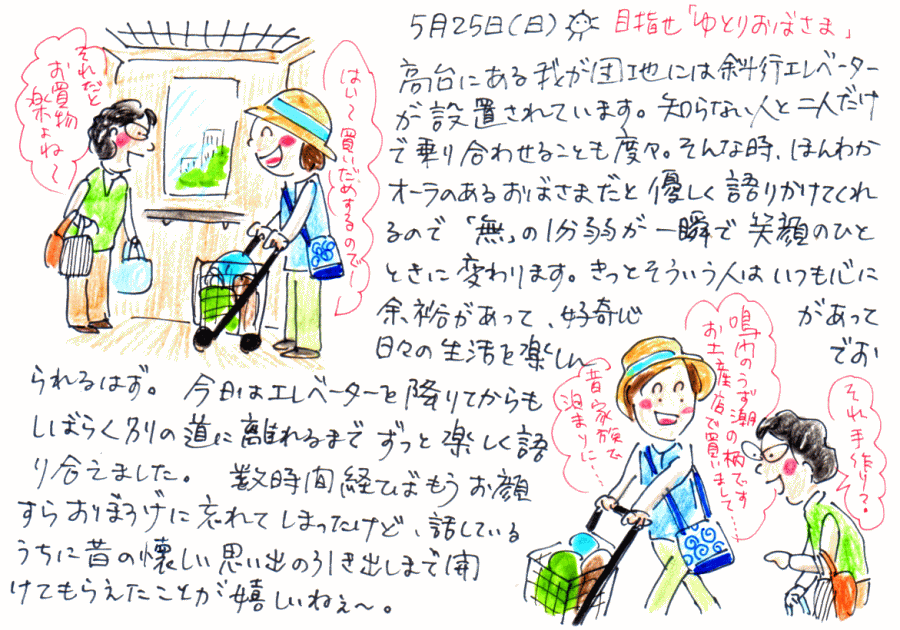 5月25日(日) 目指せ「ゆとりおばさま」
高台にある我が団地には斜行エレベーター
が設置されています。知らない人と二人だけ
で乗り合わせることも度々。そんな時、ほんわか
オーラのあるおばさまだと優しく語りかけてくれ
るので「無」の1分弱が一瞬で笑顔のひと
ときに変わります。きっとそういう人はいつも心に
余裕があって、好奇心があって
日々の生活を楽しんでお
られるはず。今日はエレベーターを降りてからも
しばらく別の道に離れるまでずっと楽しく語
り合えました。数時間経てばもうお顔
すらおぼろげに忘れてしまったけど、話している
うちに昔の懐しい思い出の引き出しまで開
けてもらえたことが嬉しいねぇ〜。
はい〜買いだめするので〜
それだと
お買物
楽よね〜
鳴門のうず潮の柄です
お土産店で買いまして…
「昔家族で
泊まりに…
それ手作り?